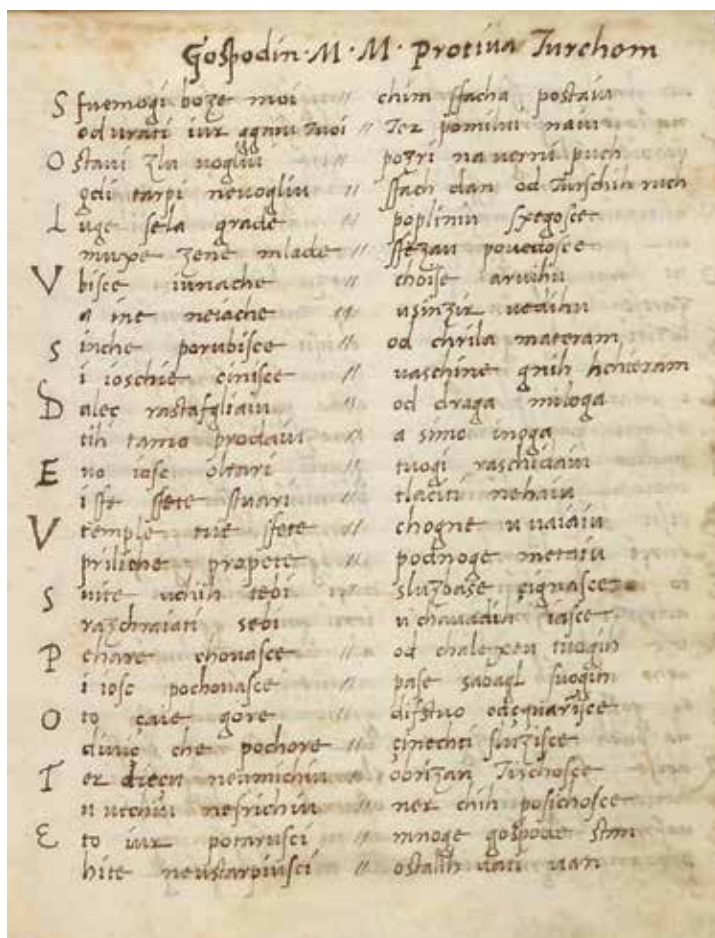 Gospodin · M · M · Protiva Turchom
S fuemogi boze moi // chim ssacha postaia
od urati iur ggniu tuoi // Tez pomilui naiu
O staui zla uogliu pozri na uerni puch
gdi tarpi neuogliu // ssach dan od Turschih ruch
L uge sela grade // popliniu sxegosce
muxe zene mlade // ssezau pouedosce
V bisce iunache // choise aruihu
a ine neiache // usinzir uedihu
S inche porubisce // od chrila materam
i ioschie cinisce // uaschine gnih hchieram
D alec rastafgliaiu // od draga miloga
tih tamo prodaiu // a simo inoga
E no iosc oltari // tuogi raschidaiu
i sse ssete stuari // tlaciti nehaiu
V temple tue ssete // chogne u uaiaiu
priliche propete // podnoge metaiu
S uite uchih tebi // sluzbase cignasce
razchraiati sebi // u chauadih iasce
P ehare chouasce // od chalexeu tuogih
i iosc pochouasce // pase sabagl suogih
O to caie gore // distuo odcquarisce
diuic che pochore // cinechti sluzisce
T er diecu neumichiu // obrizan Turchosce
u utchiu nesrichiu // ner chih posichosce
E to iur potarusci // mnoge gospode stan
hite neustarpiusci // ostalih uati uan